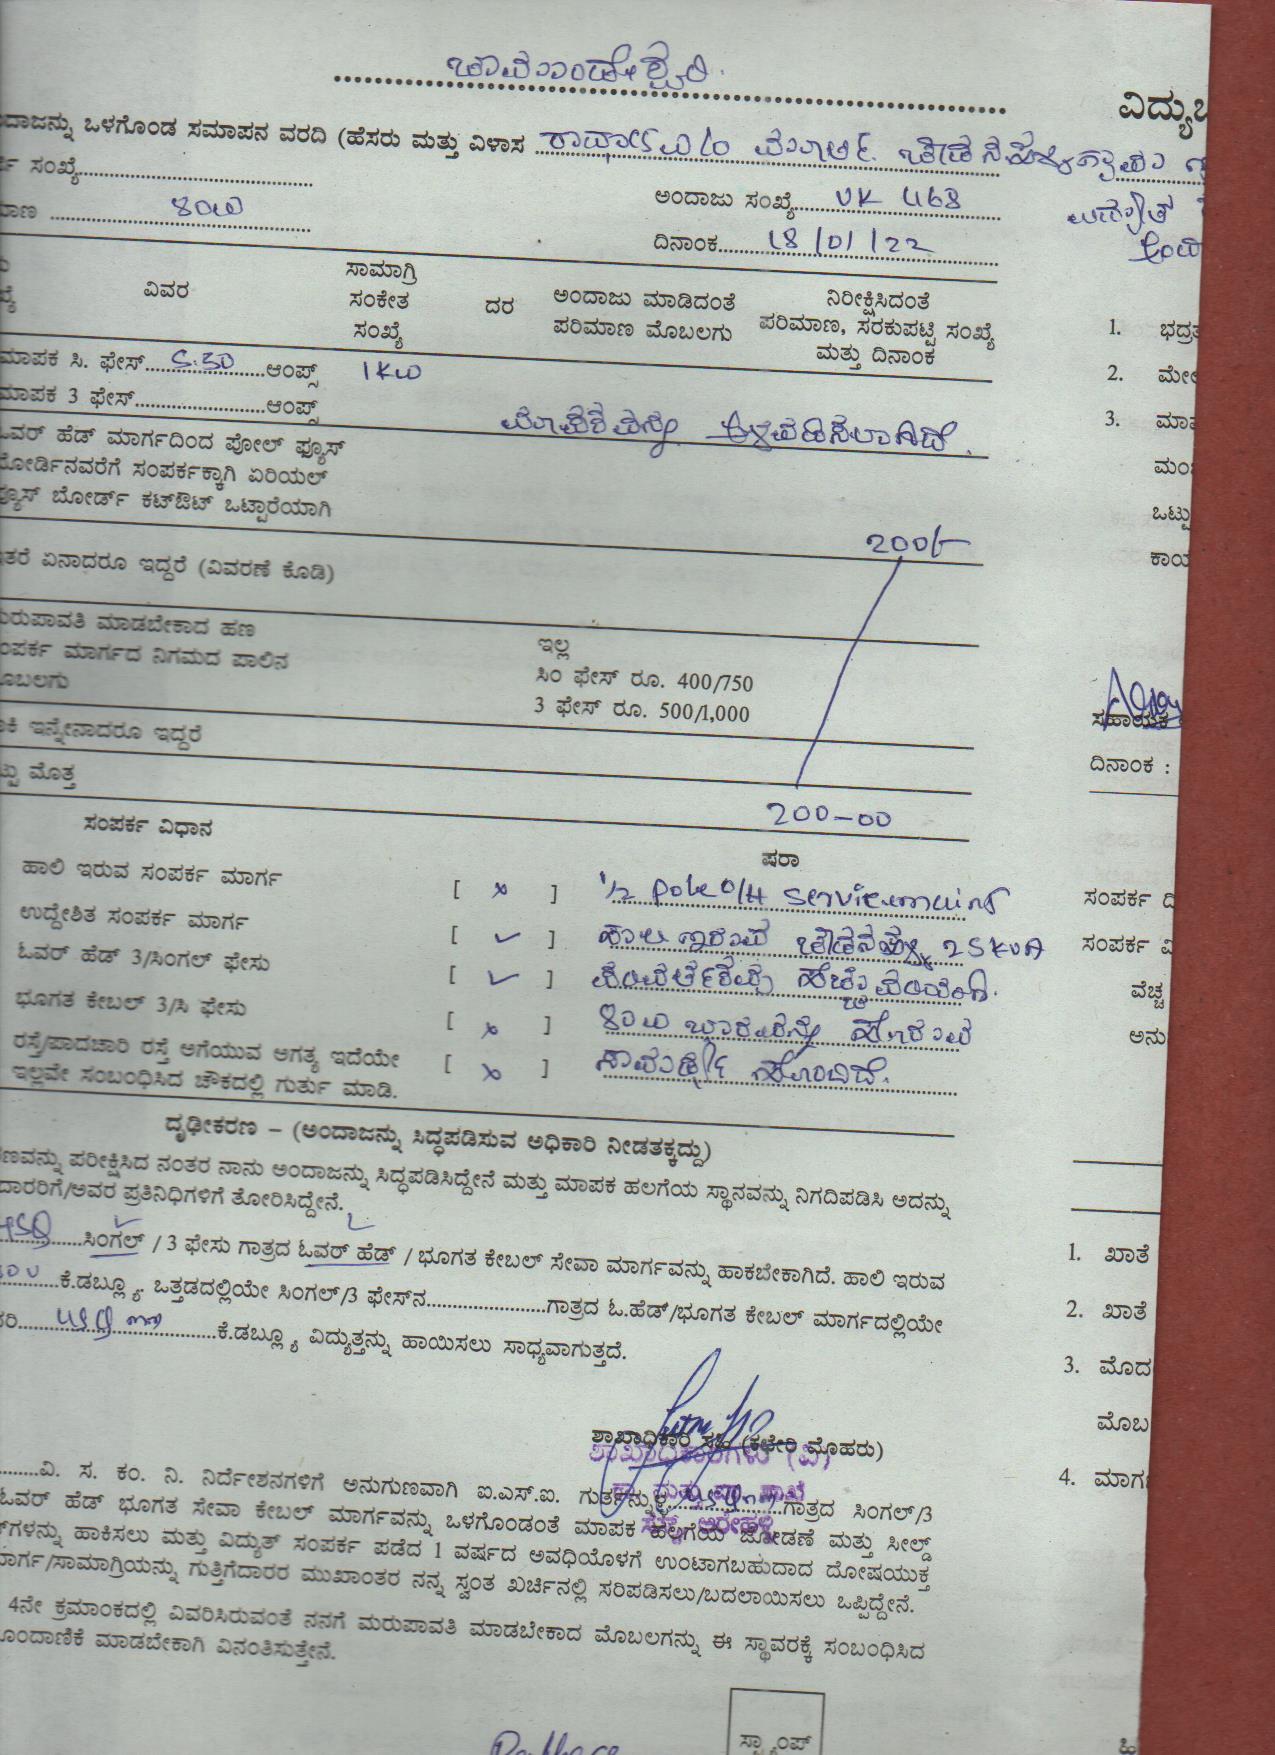 ಚಾಮುಂಡೇಶ್ವರಿ
ವಿದ್ಯು
ದಾಜನ್ನು ಒಳಗೊಂಡ ಸಮಾಪನ ವರದಿ (ಹೆಸರು ಮತ್ತು ವಿಳಾಸ
ಸಂಖ್ಯೆ
ಅಂದಾಜು ಸಂಖ್ಯೆ UK 468
ಮಾಣ 80W
ದಿನಾಂಕ 18/01/22
ವಿವರ ಸಾಮಾಗ್ರಿ ಸಂಕೇತ ಸಂಖ್ಯೆ ದರ ಅಂದಾಜು ಮಾಡಿದಂತೆ ಪರಿಮಾಣ ಮೊಬಲಗು ನಿರೀಕ್ಷಿಸಿದಂತೆ ಪರಿಮಾಣ, ಸರಕುಪಟ್ಟಿ ಸಂಖ್ಯೆ ಮತ್ತು ದಿನಾಂಕ
1.
2.
3.
ಮಾಪಕ ಸಿ. ಫೇಸ್ 5-30 ಆಂಪ್ಸ್ 1KW
ಮಾಪಕ 3 ಫೇಸ್ ಆಂಪ್ಸ್
ಮಾಪಕವನ್ನು ಅಳವಡಿಸಲಾಗಿದೆ.
ಓವರ್ ಹೆಡ್ ಮಾರ್ಗದಿಂದ ಪೋಲ್ ಫ್ಯೂಸ್
ಬೋರ್ಡಿನವರೆಗೆ ಸಂಪರ್ಕಕ್ಕಾಗಿ ಏರಿಯಲ್
ಫ್ಯೂಸ್ ಬೋರ್ಡ್ ಕಟ್‌ಔಟ್ ಒಟ್ಟಾರೆಯಾಗಿ
ಒಟ್ಟು
200/-
ತರೆ ಏನಾದರೂ ಇದ್ದರೆ (ವಿವರಣೆ ಕೊಡಿ)
ಮರುಪಾವತಿ ಮಾಡಬೇಕಾದ ಹಣ ಇಲ್ಲ
ಸಂಪರ್ಕ ಮಾರ್ಗದ ನಿಗಮದ ಪಾಲಿನ ಸಿಂ ಫೇಸ್ ರೂ. 400/750
ಮೊಬಲಗು 3 ಫೇಸ್ ರೂ. 500/1,000
ಸಹಾಯಕ
ಕಿ ಇನ್ನೇನಾದರೂ ಇದ್ದರೆ
ದಿನಾಂಕ :
ಟ್ಟು ಮೊತ್ತ
200-00
ಸಂಪರ್ಕ ವಿಧಾನ ಷರಾ
ಹಾಲಿ ಇರುವ ಸಂಪರ್ಕ ಮಾರ್ಗ [ x ] 1/2 pole O/H
ಸಂಪರ್ಕ
ಉದ್ದೇಶಿತ ಸಂಪರ್ಕ ಮಾರ್ಗ [ ✓ ] ಹಾಲಿ ಇರುವ 25 KVA
ಸಂಪರ್ಕ
ಓವರ್ ಹೆಡ್ 3/ಸಿಂಗಲ್ ಫೇಸು [ ✓ ]
ವೆಚ್ಚ
ಭೂಗತ ಕೇಬಲ್ 3/ಸಿ ಫೇಸು [ x ] 80W ಭಾರವನ್ನು ಹೊರುವ
ಅನು
ರಸ್ತೆ/ಪಾದಚಾರಿ ರಸ್ತೆ ಅಗೆಯುವ ಅಗತ್ಯ ಇದೆಯೇ [ x ] ಸಾಮರ್ಥ್ಯ ಹೊಂದಿದೆ.
ಇಲ್ಲವೇ ಸಂಬಂಧಿಸಿದ ಚೌಕದಲ್ಲಿ ಗುರ್ತು ಮಾಡಿ.
ದೃಢೀಕರಣ – (ಅಂದಾಜನ್ನು ಸಿದ್ಧಪಡಿಸುವ ಅಧಿಕಾರಿ ನೀಡತಕ್ಕದ್ದು)
ಣವನ್ನು ಪರೀಕ್ಷಿಸಿದ ನಂತರ ನಾನು ಅಂದಾಜನ್ನು ಸಿದ್ಧಪಡಿಸಿದ್ದೇನೆ ಮತ್ತು ಮಾಪಕ ಹಲಗೆಯ ಸ್ಥಾನವನ್ನು ನಿಗದಿಪಡಿಸಿ ಅದನ್ನು
ದಾರರಿಗೆ/ಅವರ ಪ್ರತಿನಿಧಿಗಳಿಗೆ ತೋರಿಸಿದ್ದೇನೆ.
ಸಿಂಗಲ್ / 3 ಫೇಸು ಗಾತ್ರದ ಓವರ್ ಹೆಡ್ / ಭೂಗತ ಕೇಬಲ್ ಸೇವಾ ಮಾರ್ಗವನ್ನು ಹಾಕಬೇಕಾಗಿದೆ. ಹಾಲಿ ಇರುವ
1. ಖಾತೆ
ಕೆ.ಡಬ್ಲ್ಯೂ. ಒತ್ತಡದಲ್ಲಿಯೇ ಸಿಂಗಲ್/3 ಫೇಸ್‌ನ ಗಾತ್ರದ ಓ.ಹೆಡ್/ಭೂಗತ ಕೇಬಲ್ ಮಾರ್ಗದಲ್ಲಿಯೇ
2. ಖಾತೆ
ಕೆ.ಡಬ್ಲ್ಯೂ ವಿದ್ಯುತ್ತನ್ನು ಹಾಯಿಸಲು ಸಾಧ್ಯವಾಗುತ್ತದೆ.
3. ಮೊದ
ಮೊಬ
ಶಾಖಾಧಿಕಾರಿ ಸಹಿ (ಕಛೇರಿ ಮೊಹರು)
ಶಾಖಾಧಿಕಾರಿಗಳು (ವಿ)
ವಿ. ಸ. ಕಂ. ನಿ. ನಿರ್ದೇಶನಗಳಿಗೆ ಅನುಗುಣವಾಗಿ ಐ.ಎಸ್.ಐ. ಗುರ್ತನ್ನುಳ್ಳ ಗಾತ್ರದ ಸಿಂಗಲ್/3
4. ಮಾರ್ಗ
ಓವರ್ ಹೆಡ್ ಭೂಗತ ಸೇವಾ ಕೇಬಲ್ ಮಾರ್ಗವನ್ನು ಒಳಗೊಂಡಂತೆ ಮಾಪಕ ಹಲಗೆಯ ಜೋಡಣೆ ಮತ್ತು ಸೀಲ್ಡ್
ಗಳನ್ನು ಹಾಕಿಸಲು ಮತ್ತು ವಿದ್ಯುತ್ ಸಂಪರ್ಕ ಪಡೆದ 1 ವರ್ಷದ ಅವಧಿಯೊಳಗೆ ಉಂಟಾಗಬಹುದಾದ ದೋಷಯುಕ್ತ
ಮಾರ್ಗ/ಸಾಮಾಗ್ರಿಯನ್ನು ಗುತ್ತಿಗೆದಾರರ ಮುಖಾಂತರ ನನ್ನ ಸ್ವಂತ ಖರ್ಚಿನಲ್ಲಿ ಸರಿಪಡಿಸಲು/ಬದಲಾಯಿಸಲು ಒಪ್ಪಿದ್ದೇನೆ.
4ನೇ ಕ್ರಮಾಂಕದಲ್ಲಿ ವಿವರಿಸಿರುವಂತೆ ನನಗೆ ಮರುಪಾವತಿ ಮಾಡಬೇಕಾದ ಮೊಬಲಗನ್ನು ಈ ಸ್ಥಾವರಕ್ಕೆ ಸಂಬಂಧಿಸಿದ
ಹೊಂದಾಣಿಕೆ ಮಾಡಬೇಕಾಗಿ ವಿನಂತಿಸುತ್ತೇನೆ.
ಸ್ಟ್ಯಾಂಪ್